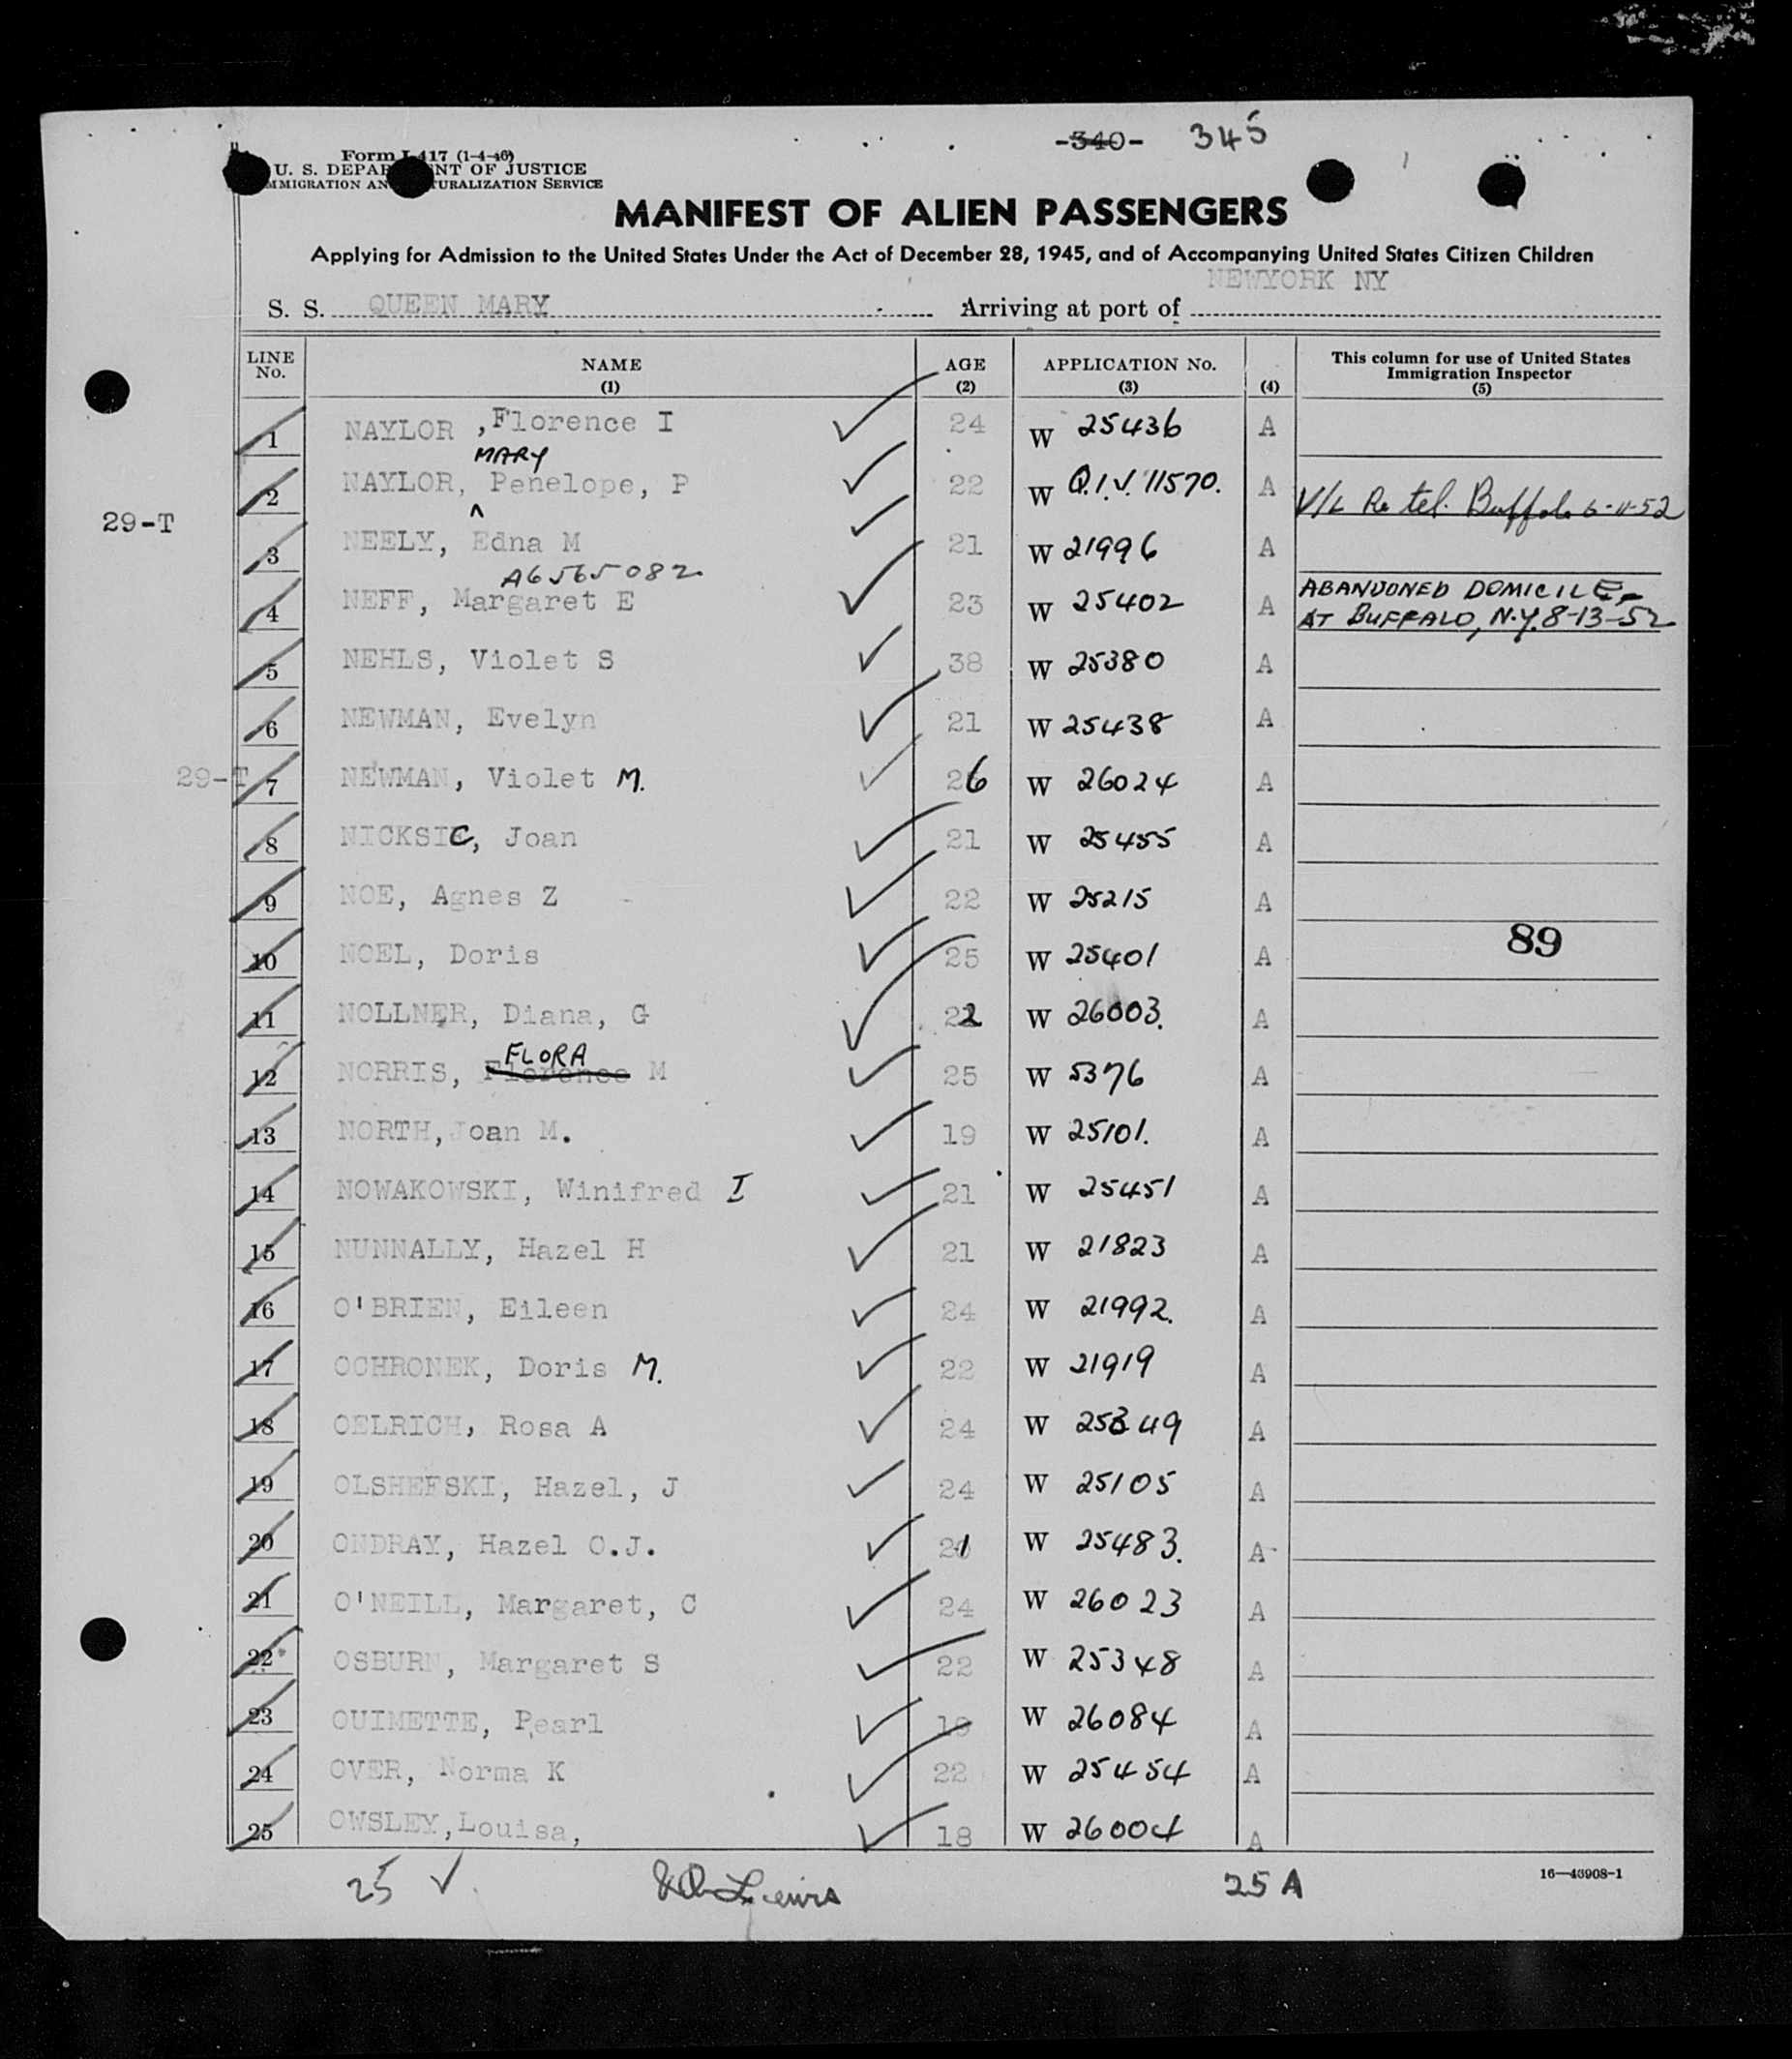 -340- 345
Form I-417 (1-4-46)
U. S. DEPARTMENT OF JUSTICE
IMMIGRATION AND NATURALIZATION SERVICE
MANIFEST OF ALIEN PASSENGERS
Applying for Admission to the United States Under the Act of December 28, 1945, and of Accompanying United States Citizen Children
NEWYORK NY
S. S. QUEEN MARY Arriving at port of
LINE No. NAME (1) AGE (2) APPLICATION No. (3) (4) This column for use of United States Immigration Inspector (5)
1 NAYLOR ,Florence I 24 W 25436 A
MARY
2 NAYLOR, Penelope, P 22 W Q.I.V. 11570. A V/L Re tel. Buffalo 6-11-52
29-T
3 NEELY, Edna M 21 W 21996 A
A6565082
4 NEFF, Margaret E 23 W 25402 A ABANDONED DOMICILE, AT BUFFALO, N.Y. 8-13-52
5 NEHLS, Violet S 38 W 25380 A
6 NEWMAN, Evelyn 21 W 25438 A
29-T 7 NEWMAN, Violet M. 26 W 26024 A
8 NICKSIC, Joan 21 W 25455 A
9 NOE, Agnes Z 22 W 25215 A
89
10 NOEL, Doris 25 W 25401 A
11 NOLLNER, Diana, G 22 W 26003. A
FLORA
12 NORRIS, Florence M 25 W 5376 A
13 NORTH, Joan M. 19 W 25101. A
14 NOWAKOWSKI, Winifred I 21 W 25451 A
15 NUNNALLY, Hazel H 21 W 21823 A
16 O'BRIEN, Eileen 24 W 21992. A
17 OCHRONEK, Doris M. 22 W 21919 A
18 OELRICH, Rosa A 24 W 25349 A
19 OLSHEFSKI, Hazel, J 24 W 25105 A
20 ONDRAY, Hazel O.J. 21 W 25483. A
21 O'NEILL, Margaret, C 24 W 26023 A
22 OSBURN, Margaret S 22 W 25348 A
23 OUIMETTE, Pearl 19 W 26084 A
24 OVER, Norma K 22 W 25454 A
25 OWSLEY,Louisa, 18 W 26004 A
25 ✓ Lewis 25 A
16—46908-1